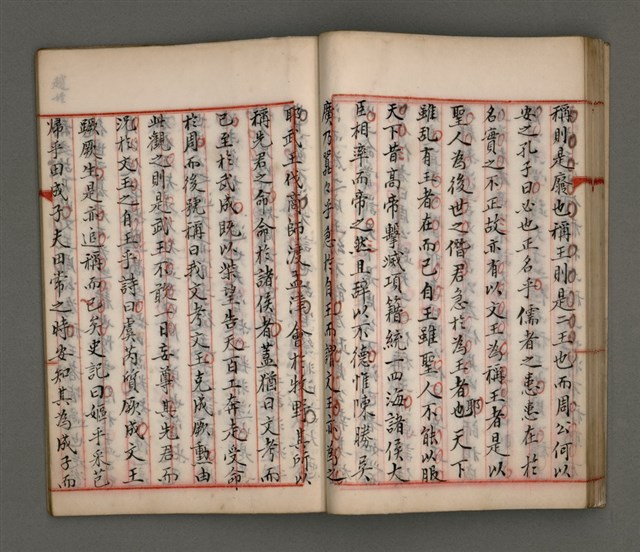 稱則是廢也稱王則是二王也而周公何以
安之孔子曰必也正名乎儒者之患患在於
名實之不正故亦有以文王為稱王者是以
聖人為後世之僭君急於為王者也天下
雖乱有王者在而已自王雖聖人不能以服
天下昔高帝擊滅項籍統一四海諸侯大
臣相率而帝之然且辭以不德惟陳勝吳
廣乃囂々乎急於自王而謂文王亦為之
耶武王伐商師渡孟津會於牧野其所以
稱先君之命命於諸侯者蓋猶曰文考而
已至於武成既以柴望告天百工奔走受命
於周而後號稱曰我文考文王克成厥勳由
此觀之則是武王不敢一日妄尊其先君而
況於文王之自王乎詩曰虞芮質厥成文王
蹶厥生是亦追稱而已矣史記曰嫗乎采芑
歸乎田成子夫田常之時安知其為成子而